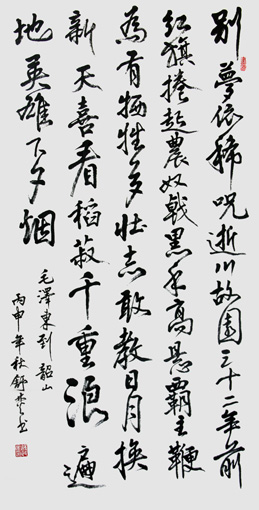 別夢依稀咒逝川故園三十二年前
紅旗捲起農奴戟黑手高懸霸主鞭
為有犧牲多壮志敢教日月换
新天喜看稻菽千重浪遍
地英雄下夕烟
毛澤東到韶山
丙申年秋舒书